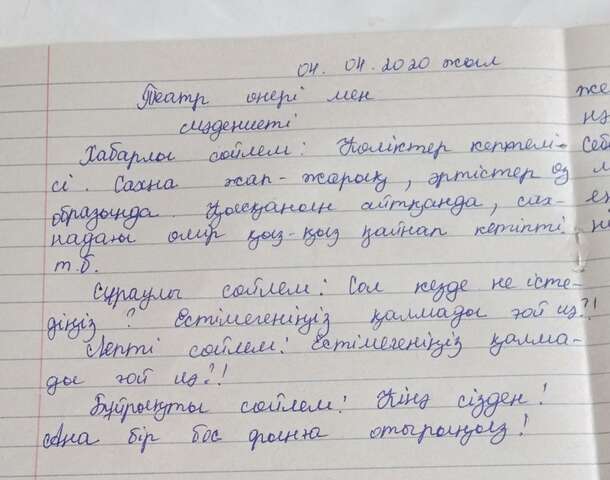 04. 04. 2020 жыл
Театр өнері мен
мәдениеті
Хабарлы сөйлем: Көліктер кептелі-
сі. Сахна жап-жарық, әртістер өз
образында. Қысқасын айтқанда, сах-
надағы өмір қыз-қыз қайнап кетіпті
т.б.
Сұраулы сөйлем: Сол кезде не істе-
діңіз? Естімегеніңіз қалмады ғой иә?!
Лепті сөйлем: Естімегеніңіз қалма-
ды ғой иә?!
Бұйрықты сөйлем: Кінә сізден!
Ана бір бос орынға отырыңыз!
же
из
Себ